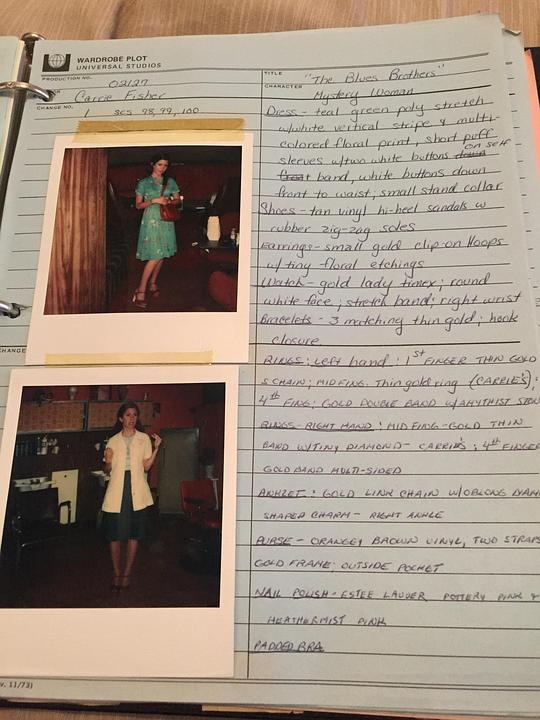 WARDROBE PLOT
UNIVERSAL STUDIOS
PRODUCTION NO. 02127
Carrie Fisher
CHANGE NO. 1 scs 98, 99, 100
TITLE "The Blues Brothers"
CHARACTER Mystery Woman
Dress - teal green poly stretch
w/white vertical stripe & multi-
colored floral print, short puff
sleeves w/two white buttons down on self
front band, white buttons down
front to waist; small stand collar
Shoes - tan vinyl hi-heel sandals w
rubber zig-zag soles
Earrings - small gold clip-on Hoops
w/ tiny floral etchings
Watch - gold lady timex; round
white face; stretch band; right wrist
Bracelets - 3 matching thin gold; hook
closure
RINGS: Left hand: 1st FINGER THIN GOLD
S CHAIN; MID FING. Thin gold ring (CARRIE'S);
4th FING; GOLD DOUBLE BAND W/AMYTHIST
RINGS - RIGHT HAND: MID FING - GOLD THIN
BAND W/TINY DIAMOND - CARRIE'S; 4th FINGER
GOLD BAND MULTI-SIDED
ANKLET: GOLD LINK CHAIN W/OBLONG
SHAPED CHARM - RIGHT ANKLE
PURSE - ORANGEY BROWN VINYL, TWO STRAPS
GOLD FRAME; OUTSIDE POCKET
NAIL POLISH - ESTEE LAUDER POTTERY PINK &
HEATHERMIST PINK
PADDED BRA
CHANGE
v. 11/73)